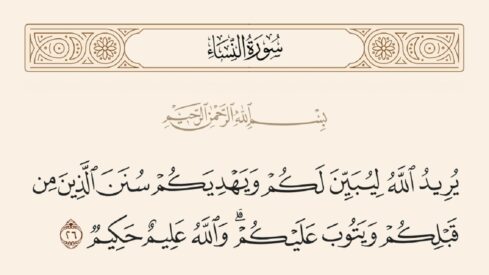 سُورَةُ النِّسَاءِ
بِسْمِ اللَّهِ الرَّحْمَٰنِ الرَّحِيمِ
يُرِيدُ اللَّهُ لِيُبَيِّنَ لَكُمْ وَيَهْدِيَكُمْ سُنَنَ الَّذِينَ مِن
قَبْلِكُمْ وَيَتُوبَ عَلَيْكُمْ ۗ وَاللَّهُ عَلِيمٌ حَكِيمٌ ٢٦